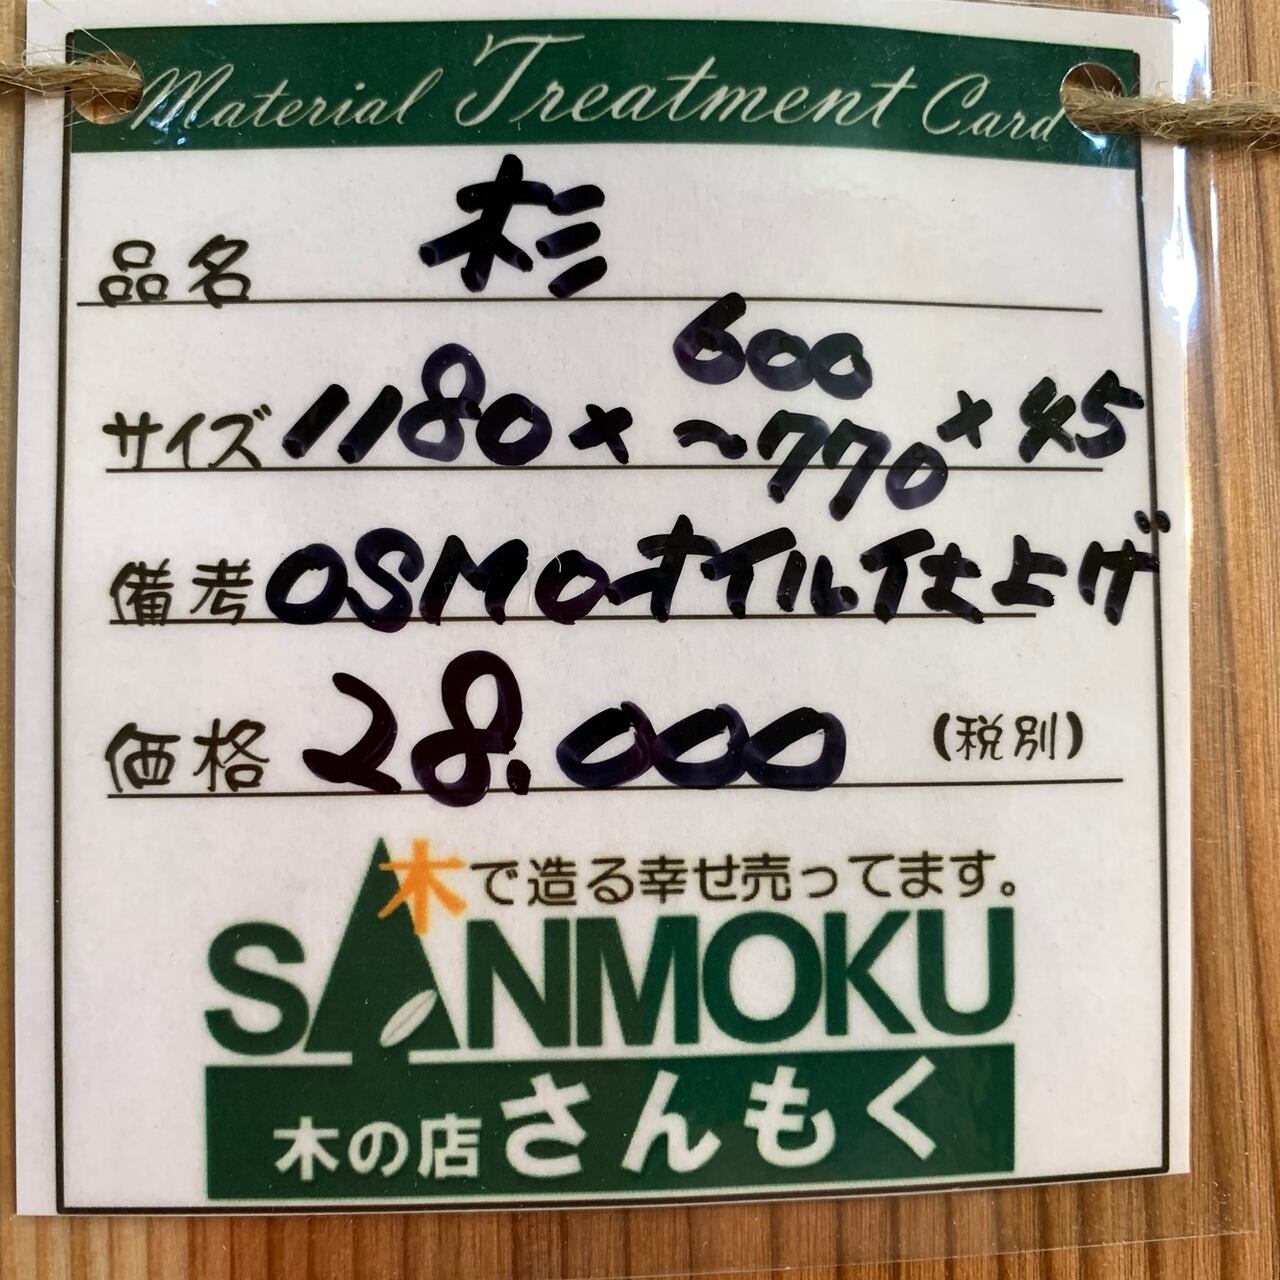 Material Treatment Card
品名 杉
サイズ 1180×600~770×45
備考 OSMOオイル仕上げ
価格 28.000 (税別)
木で造る幸せ売ってます。
SANMOKU
木の店 さんもく